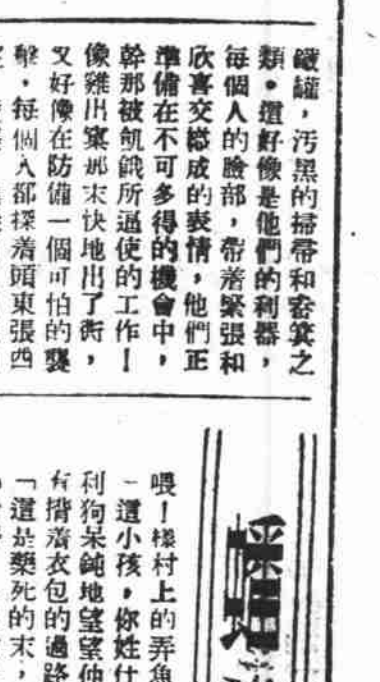 鐵罐，汚黑的掃帚和畚箕之
類。這好像是他們的利器，
每個人的臉部，帶着緊張和
欣喜交織成的表情，他們正
準備在不可多得的機會中，
幹那被飢餓所逼使的工作！
像雞出窠那末快地出了衖，
又好像在防備一個可怕的襲
擊，每個人都探着頭東張西
喂！樣村上的弄魚
這小孩，你姓什
利狗呆鈍地望望他
有揹着衣包的過路
「這是藥死的末，